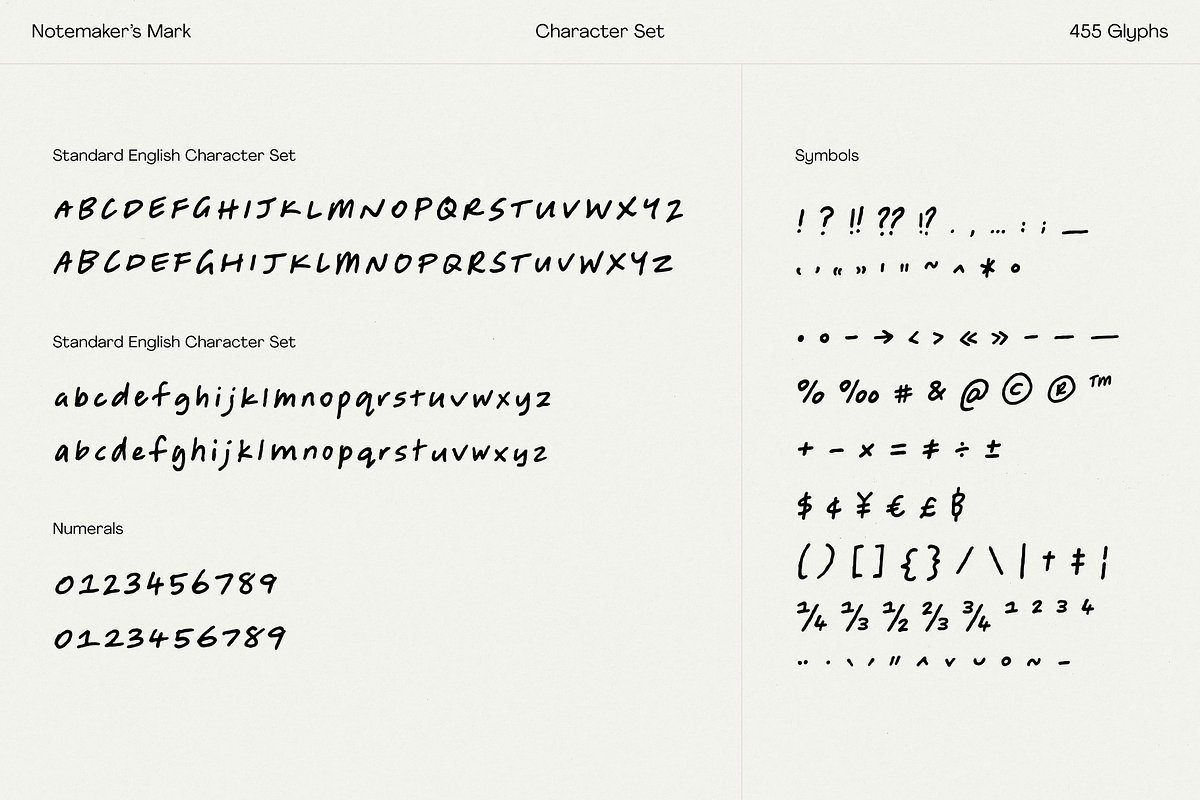 Notemaker’s Mark
Character Set
455 Glyphs
Standard English Character Set
ABCDEFGHIJKLMNOPQRSTUVWXYZ
ABCDEFGHIJKLMNOPQRSTUVWXYZ
Standard English Character Set
abcdefghijklmnopqrstuvwxyz
abcdefghijklmnopqrstuvwxyz
Numerals
0123456789
0123456789
Symbols
! ? ‼ ⁇ ⁉ . , … : ; _
‘ ’ “ ” ' " ~ ^ * °
• ° - → ‹ › « » - – —
% ‰ # & @ © ® ™
+ − × = ≠ ÷ ±
$ ¢ ¥ € £ ₿
( ) [ ] { } / \ | † ‡ ¦
¼ ⅓ ½ ⅔ ¾ ¹ ² ³ ⁴
¨ ˙ ` ´ ˝ ˆ ˇ ˘ ˚ ˜ ¯